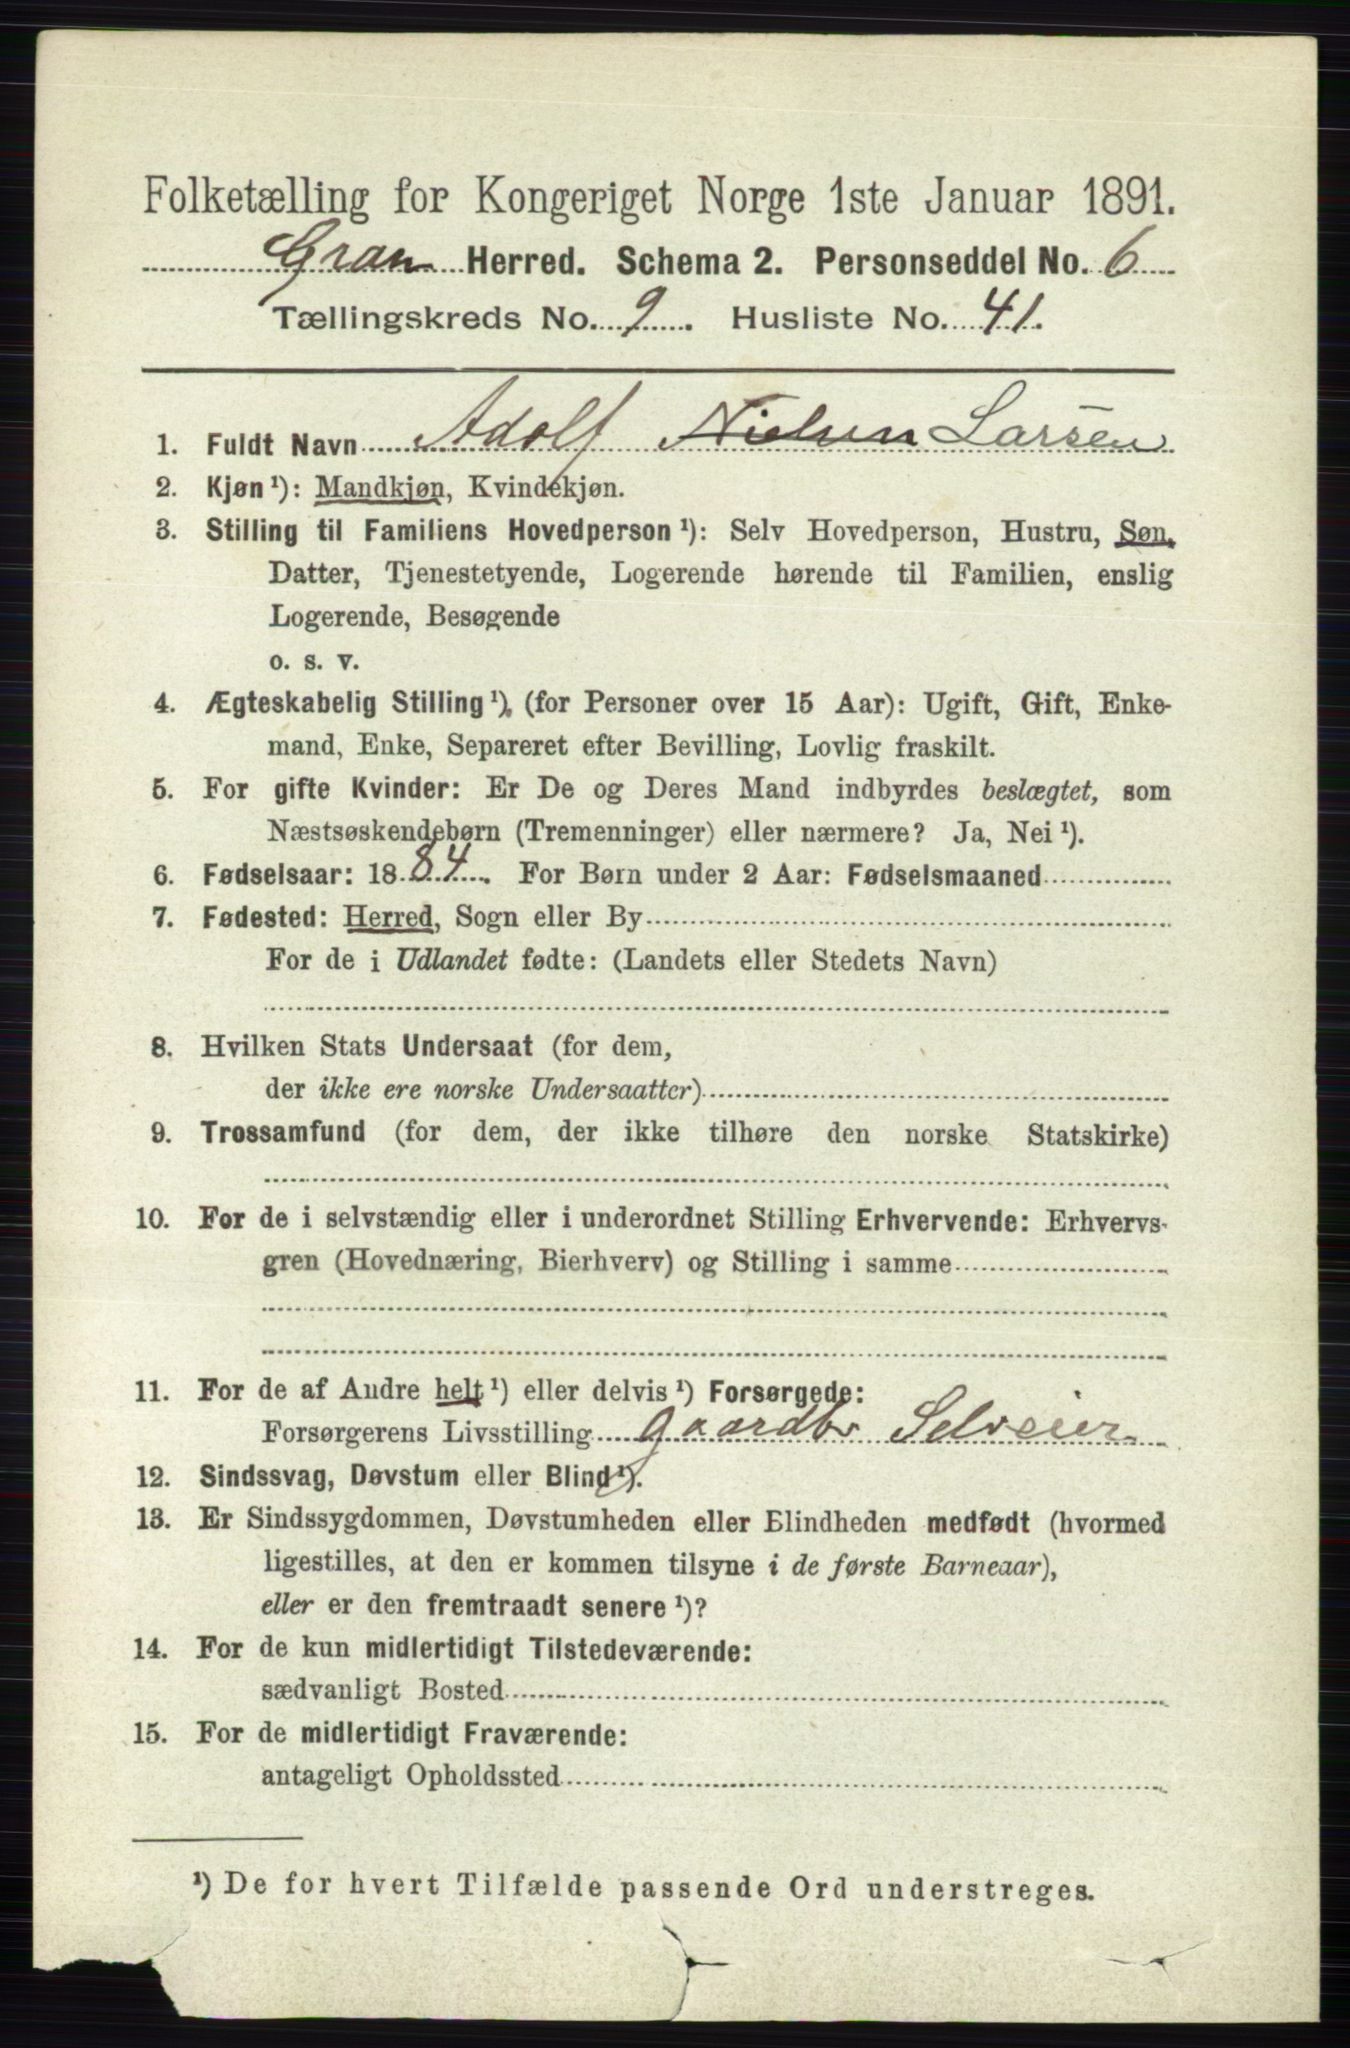 Folketælling for Kongeriget Norge 1ste Januar 1891.
Gran Herred. Schema 2. Personseddel No. 6
Tællingskreds No. 9. Husliste No. 41.
1. Fuldt Navn Adolf Nielsen Larsen
2. Kjøn ¹): Mandkjøn, Kvindekjøn.
3. Stilling til Familiens Hovedperson ¹): Selv Hovedperson, Hustru, Søn,
Datter, Tjenestetyende, Logerende hørende til Familien, enslig
Logerende, Besøgende
o. s. v.
4. Ægteskabelig Stilling ¹), (for Personer over 15 Aar): Ugift, Gift, Enke-
mand, Enke, Separeret efter Bevilling, Lovlig fraskilt.
5. For gifte Kvinder: Er De og Deres Mand indbyrdes beslægtet, som
Næstsøskendebørn (Tremenninger) eller nærmere? Ja, Nei ¹).
6. Fødselsaar: 1884. For Børn under 2 Aar: Fødselsmaaned
7. Fødested: Herred, Sogn eller By
For de i Udlandet fødte: (Landets eller Stedets Navn)
8. Hvilken Stats Undersaat (for dem,
der ikke ere norske Undersaatter)
9. Trossamfund (for dem, der ikke tilhøre den norske Statskirke)
10. For de i selvstændig eller i underordnet Stilling Erhvervende: Erhvervs-
gren (Hovednæring, Bierhverv) og Stilling i samme
11. For de af Andre helt ¹) eller delvis ¹) Forsørgede:
Forsørgerens Livsstilling gaardbr Selveier
12. Sindssvag, Døvstum eller Blind ¹).
13. Er Sindssygdommen, Døvstumheden eller Blindheden medfødt (hvormed
ligestilles, at den er kommen tilsyne i de første Barneaar),
eller er den fremtraadt senere ¹)?
14. For de kun midlertidigt Tilstedeværende:
sædvanligt Bosted
15. For de midlertidigt Fraværende:
antageligt Opholdssted
¹) De for hvert Tilfælde passende Ord understreges.